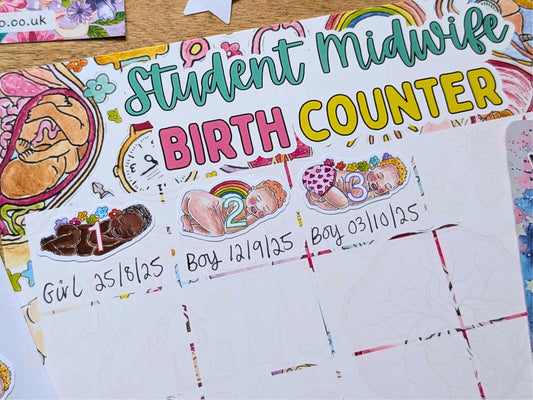 p.co.uk
Student Midwife
BIRTH COUNTER
1 2 3
Girl 25/8/25 Boy 12/9/25 Boy 03/10/25